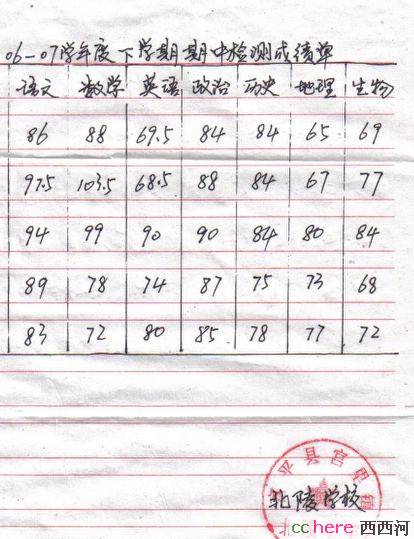 06-07学年度下学期期中检测成绩单
语文 数学 英语 政治 历史 地理 生物
86 88 69.5 84 84 65 69
97.5 103.5 68.5 88 84 67 77
94 99 90 90 84 80 84
89 78 74 87 75 73 68
83 72 80 85 78 77 72
平县宫里镇
北陵学校
cchere 西西河